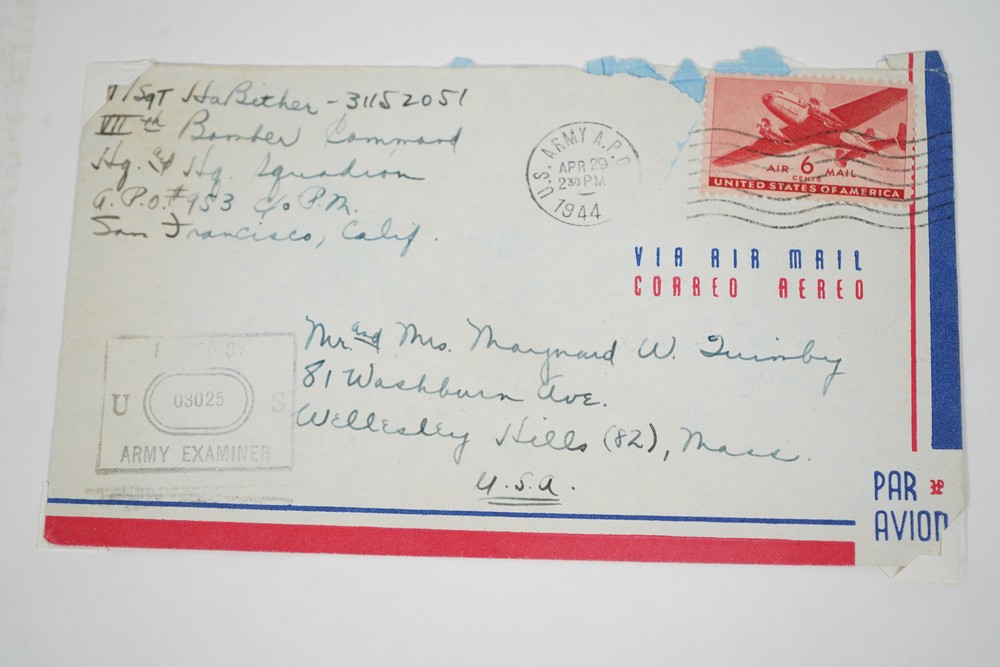 T/Sgt HaBither - 31152051
VIIth Bomber Command
Hq. and Hq. Squadron
A.P.O. # 953 c/o P.M.
San Francisco, Calif.
U.S. ARMY A.P.O.
APR 29
2 30 PM
1944
AIR 6 MAIL
CENTS
UNITED STATES OF AMERICA
VIA AIR MAIL
CORREO AEREO
Mr. and Mrs. Maynard W. Quimby
81 Washburn Ave.
Wellesley Hills (82), Mass.
U.S.A.
BY
U 03025 S
ARMY EXAMINER
PAR
AVION